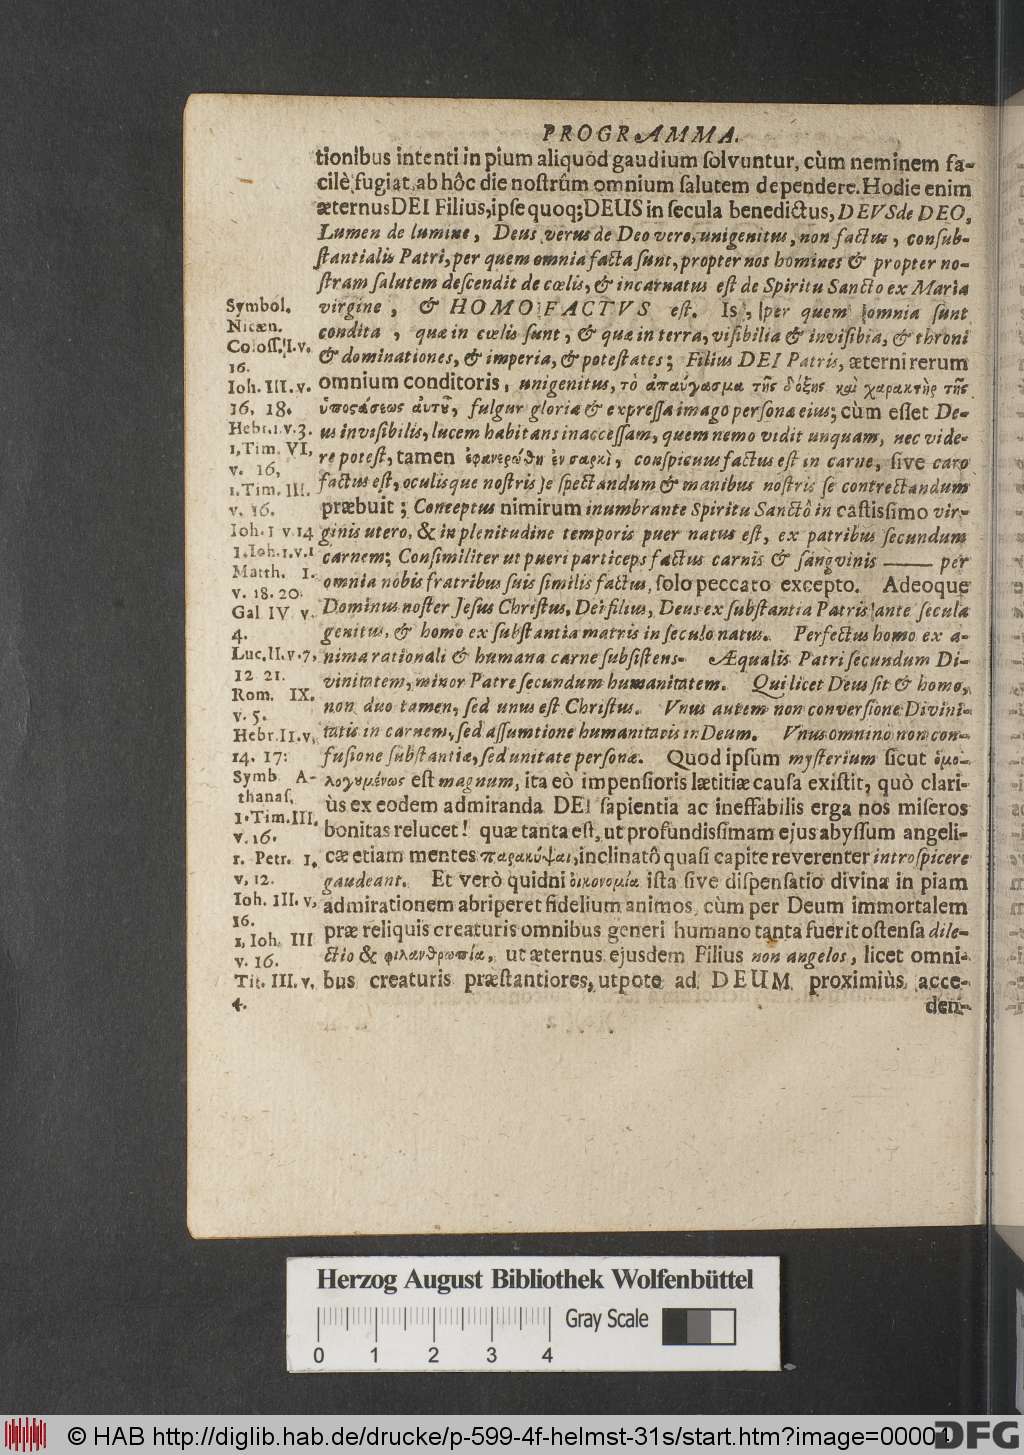 PROGRAMMA.
tionibus intenti in pium aliquôd gaudium ſolvuntur, cùm neminem fa-
cilè fugiat, ab hôc die noſtrûm omnium ſalutem dependere. Hodie enim
æternus DEI Filius, ipſe quoq; DEUS in ſecula benedictus, DEVS de DEO,
Lumen de lumine, Deus verus de Deo vero, unigenitus, non factus, conſub-
ſtantialis Patri, per quem omnia facta ſunt, propter nos homines & propter no-
ſtram ſalutem deſcendit de cœlis, & incarnatus eſt de Spiritu Sancto ex Maria
virgine, & HOMO FACTVS eſt. Is, per quem omnia ſunt
condita, quæ in cœlis ſunt, & quæ in terra, viſibilia & inviſibia, & throni
& dominationes, & imperia, & poteſtates; Filius DEI Patris, æterni rerum
omnium conditoris, unigenitus, τὸ ἀπαύγασμα τῆς δόξης καὶ χαρακτὴρ τῆς
ὑποςάσεως ἀυτοῦ, fulgur gloriæ & expreſſa imago perſonæ eius; cùm eſſet De-
us inviſibilis, lucem habitans inacceſſam, quem nemo vidit unquam, nec vide-
re poteſt, tamen ἐφανερώθη ἐν σαρκὶ, conſpicuus factus eſt in carne, ſive caro
factus eſt, oculisque noſtris ſe ſpectandum & manibus noſtris ſe contrectandum
præbuit; Conceptus nimirum inumbrante Spiritu Sanctô in caſtiſſimo vir-
ginis utero, & in plenitudine temporis puer natus eſt, ex patribus ſecundum
carnem; Conſimiliter ut pueri particeps factus carnis & ſangvinis —— per
omnia nobis fratribus ſuis ſimilis factus, ſolo peccato excepto. Adeoque
Dominus noſter Jeſus Chriſtus, Dei filius, Deus ex ſubſtantia Patris ante ſecula
genitus, & homo ex ſubſtantia matris in ſeculo natus. Perfectus homo ex a-
nima rationali & humana carne ſubſiſtens. Æqualis Patri ſecundum Di-
vinitatem, minor Patre ſecundum humanitatem. Qui licet Deus ſit & homo,
non duo tamen, ſed unus eſt Chriſtus. Vnus autem non converſione Divini-
tatis in carnem, ſed aſſumtione humanitatis in Deum. Vnus omnino non con-
fuſione ſubſtantiæ, ſed unitate perſonæ. Quod ipſum myſterium ſicut ὁμο-
λογουμένως eſt magnum, ita eò impenſioris lætitiæ cauſa exiſtit, quò clari-
ùs ex eodem admiranda DEI ſapientia ac ineffabilis erga nos miſeros
bonitas relucet! quæ tanta eſt, ut profundiſſimam ejus abyſſum angeli-
cæ etiam mentes παρακύψαι, inclinatô quaſi capite reverenter introſpicere
gaudeant. Et verò quidni ὀικονομία iſta ſive diſpenſatio divina in piam
admirationem abriperet fidelium animos, cùm per Deum immortalem
præ reliquis creaturis omnibus generi humano tanta fuerit oſtenſa dile-
ctio & φιλανθρωπία, ut æternus ejusdem Filius non angelos, licet omni-
bus creaturis præſtantiores, utpote ad DEUM proximiùs acce-
den-
Symbol.
Nicæn.
Coloſſ. I. v.
16.
Ioh. III. v.
16. 18.
Hebr. 1. v. 3.
1. Tim. VI,
v. 16,
1. Tim. III.
v. 16.
Ioh. I v 14
1. Ioh. 1. v. 1
Matth. 1.
v. 18. 20.
Gal IV v.
4.
Luc. II. v. 7,
12 21.
Rom. IX.
v. 5.
Hebr. II. v,
14. 17:
Symb A-
thanaſ.
1. Tim. III.
v. 16.
1. Petr. 1.
v, 12.
Ioh. III. v,
16.
1, Ioh. III
v. 16.
Tit. III. v,
4.
Herzog August Bibliothek Wolfenbüttel
Gray Scale
0 1 2 3 4
© HAB http://diglib.hab.de/drucke/p-599-4f-helmst-31s/start.htm?image=00004
DFG